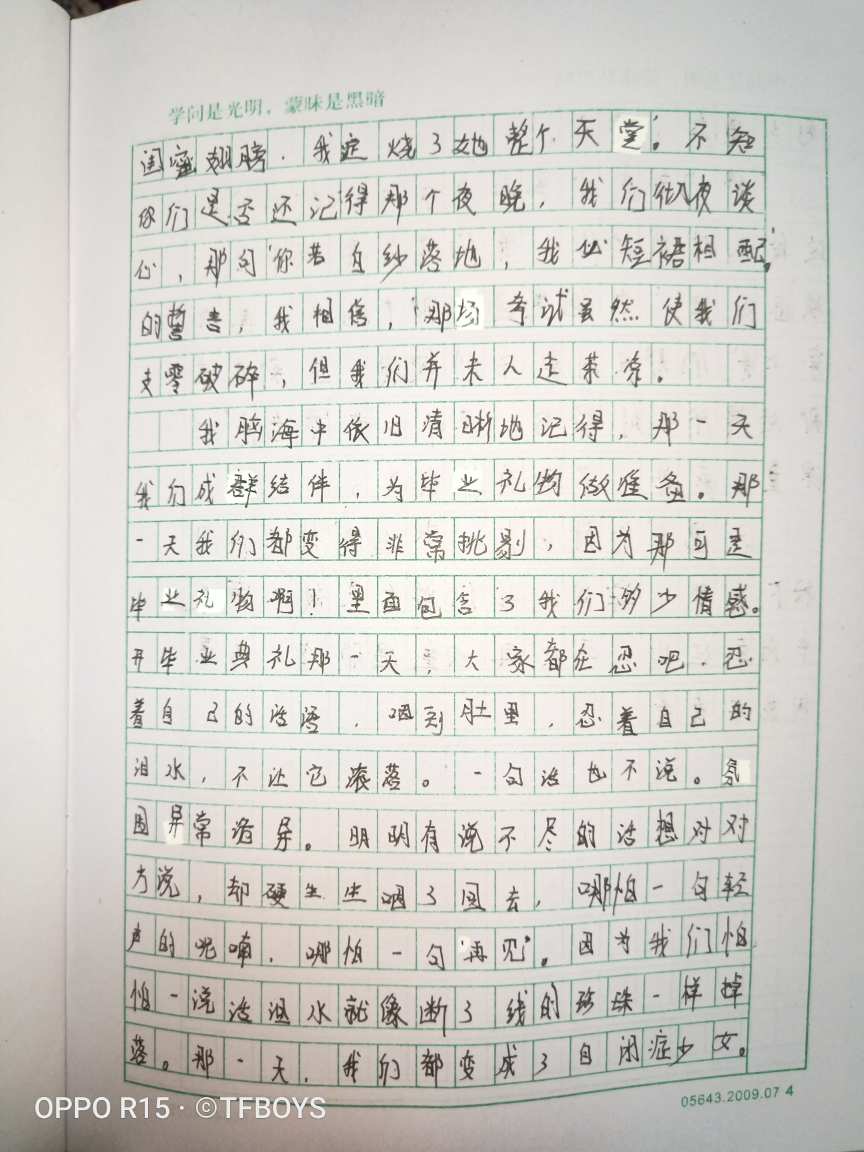 学问是光明，蒙昧是黑暗
闺蜜翅膀，我定烧了她整个天堂。'不知
你们是否还记得那个夜晚，我们彻夜谈
心，那句'你若白纱落地，我必短裙相配。'
的誓言，我相信，那场考试虽然使我们
支零破碎，但我们并未人走茶凉。
我脑海中依旧清晰地记得，那一天
我们成群结伴，为毕业礼物做准备。那
一天我们都变得非常挑剔，因为那可是
毕业礼物啊！里面包含了我们多少情感。
开毕业典礼那一天，大家都在忍吧，忍
着自己的话语，咽到肚里，忍着自己的
泪水，不让它滚落。一句话也不说。氛
围异常诡异。明明有说不尽的话想对对
方说，却硬生生咽了回去，哪怕一句轻
声的呢喃，哪怕一句'再见'。因为我们怕
怕一说话泪水就像断了线的珍珠一样掉
落。那一天，我们都变成了自闭症少女。
05643.2009.07 4
OPPO R15 · ©TFBOYS